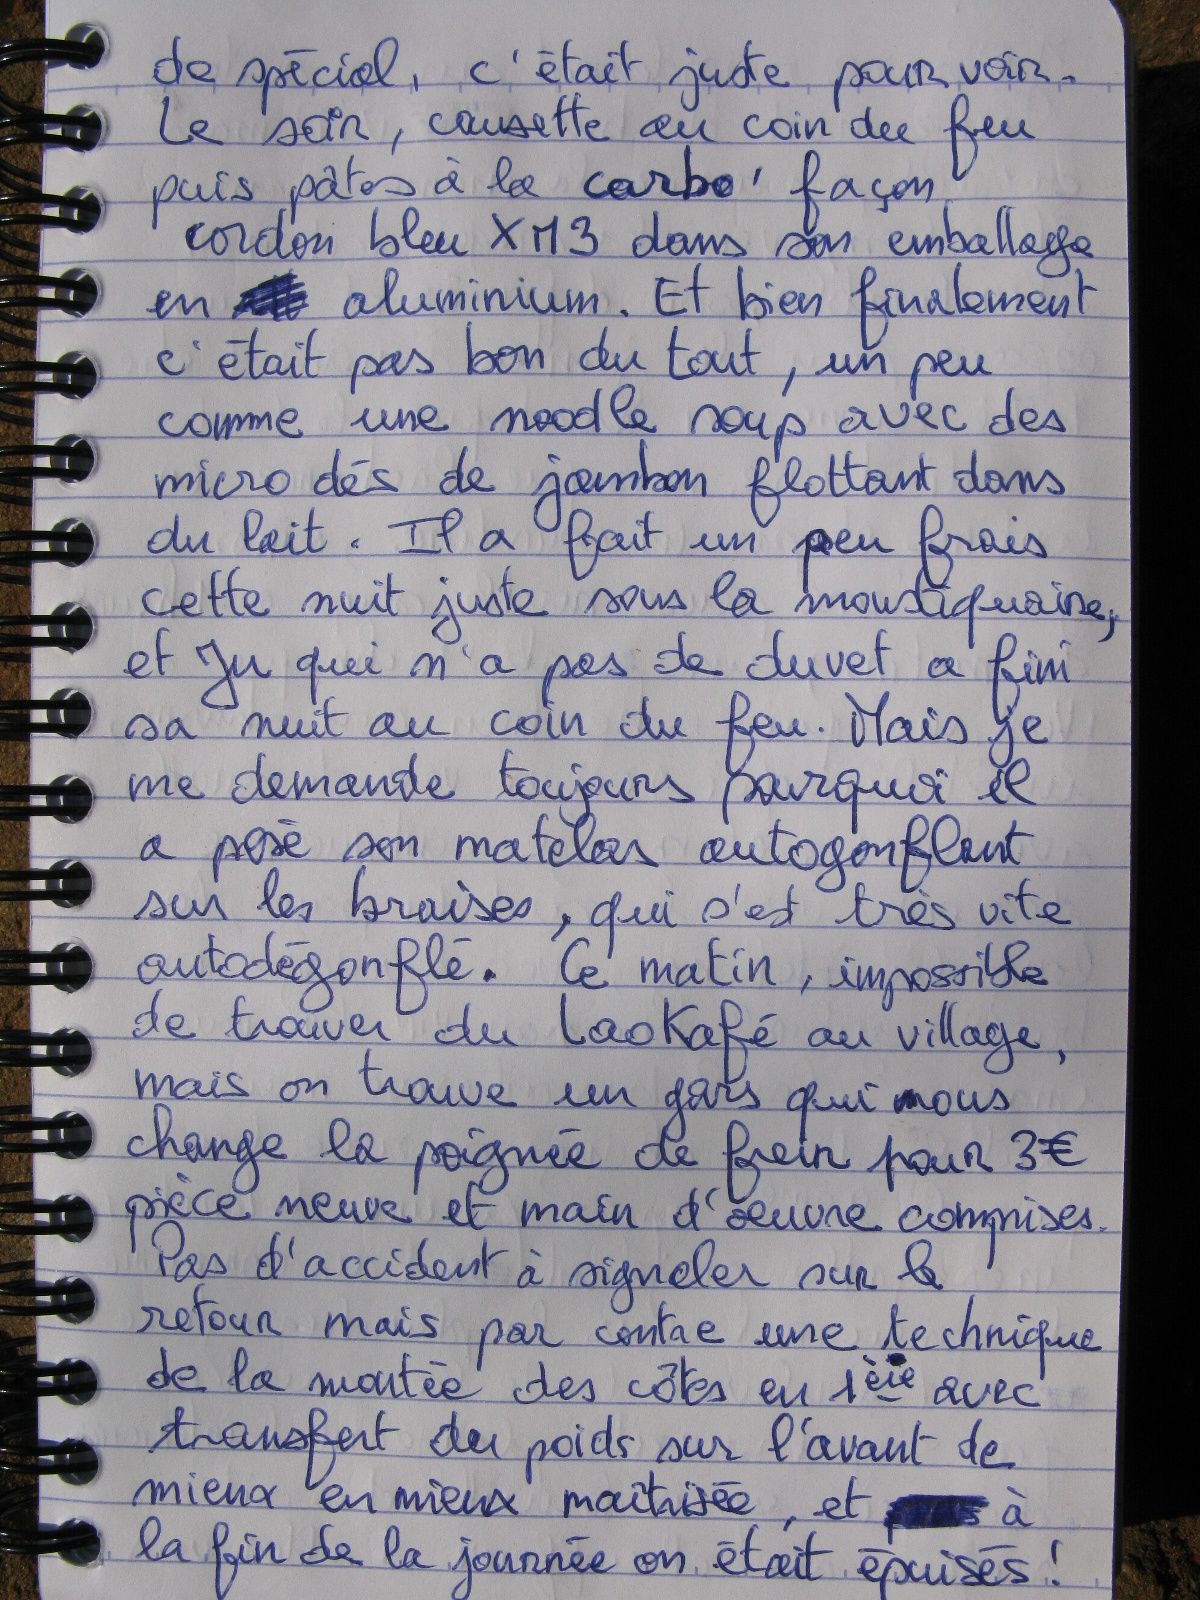 de spécial, c'était juste pour voir.
Le soir, causette au coin du feu
puis pâtes à la carbo' façon
cordon bleu XM3 dans son emballage
en aluminium. Et bien finalement
c'était pas bon du tout, un peu
comme une noodle soup avec des
micro dés de jambon flottant dans
du lait. Il a fait un peu frais
cette nuit juste sous la moustiquaire,
et Ju qui n'a pas de duvet a fini
sa nuit au coin du feu. Mais je
me demande toujours pourquoi il
a posé son matelas autogonflant
sur les braises, qui s'est très vite
autodégonflé. Ce matin, impossible
de trouver du LaoKafé au village,
mais on trouve un gars qui nous
change la poignée de frein pour 3€
pièce neuve et main d'oeuvre comprises.
Pas d'accident à signaler sur le
retour mais par contre une technique
de la montée des côtes en 1ère avec
transfert du poids sur l'avant de
mieux en mieux maîtrisée, et à
la fin de la journée on était épuisés !